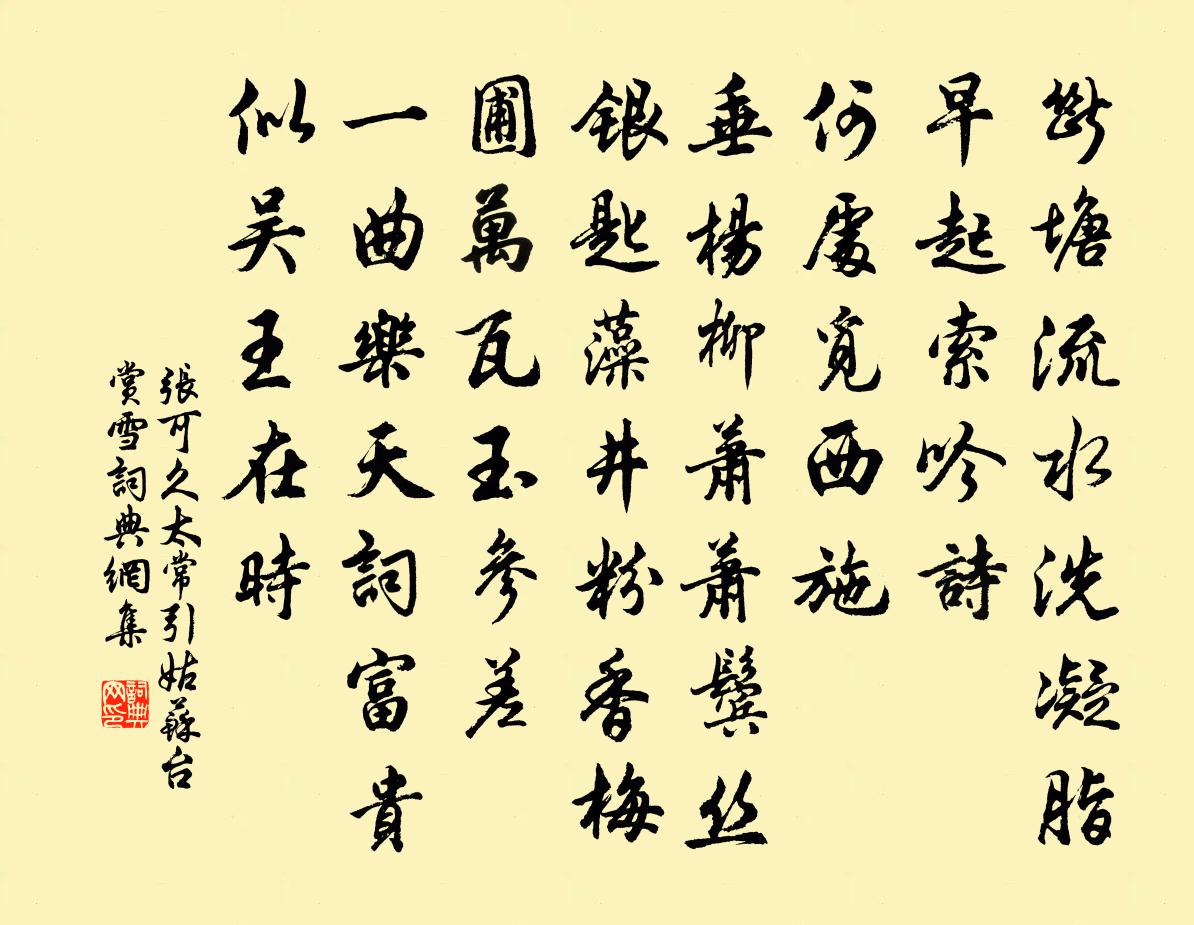 斷塘流水洗凝脂
早起索吟詩
何處覓西施
垂楊柳蕭蕭鬓丝
銀匙藻井粉香梅
圃萬瓦玉參差
一曲樂天詞富貴
似吴王在時
張可久太常引姑蘇台
賞雪詞典網集
詞典
网印